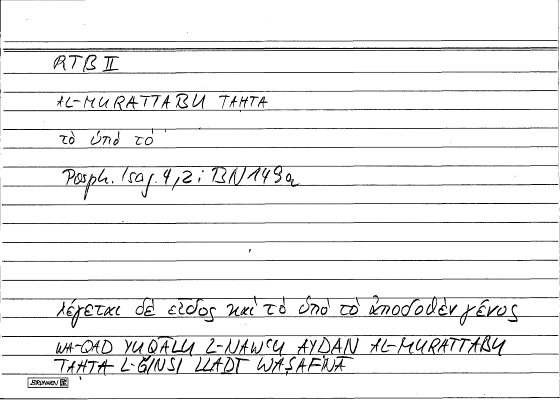 RTB II
AL-MURATTABU TAHTA
τὸ ὑπὸ τὸ
Porph. Isag. 4,2; BN 149a
λέγεται δὲ εἶδος καὶ τὸ ὑπὸ τὸ ἀποδοθὲν γένος
WA-QAD YUQĀLU L-NAWʿU AYḌAN AL-MURATTABU
TAHTA L-ǦINSI LLADĪ WAṢAFNĀ
BRUNNEN